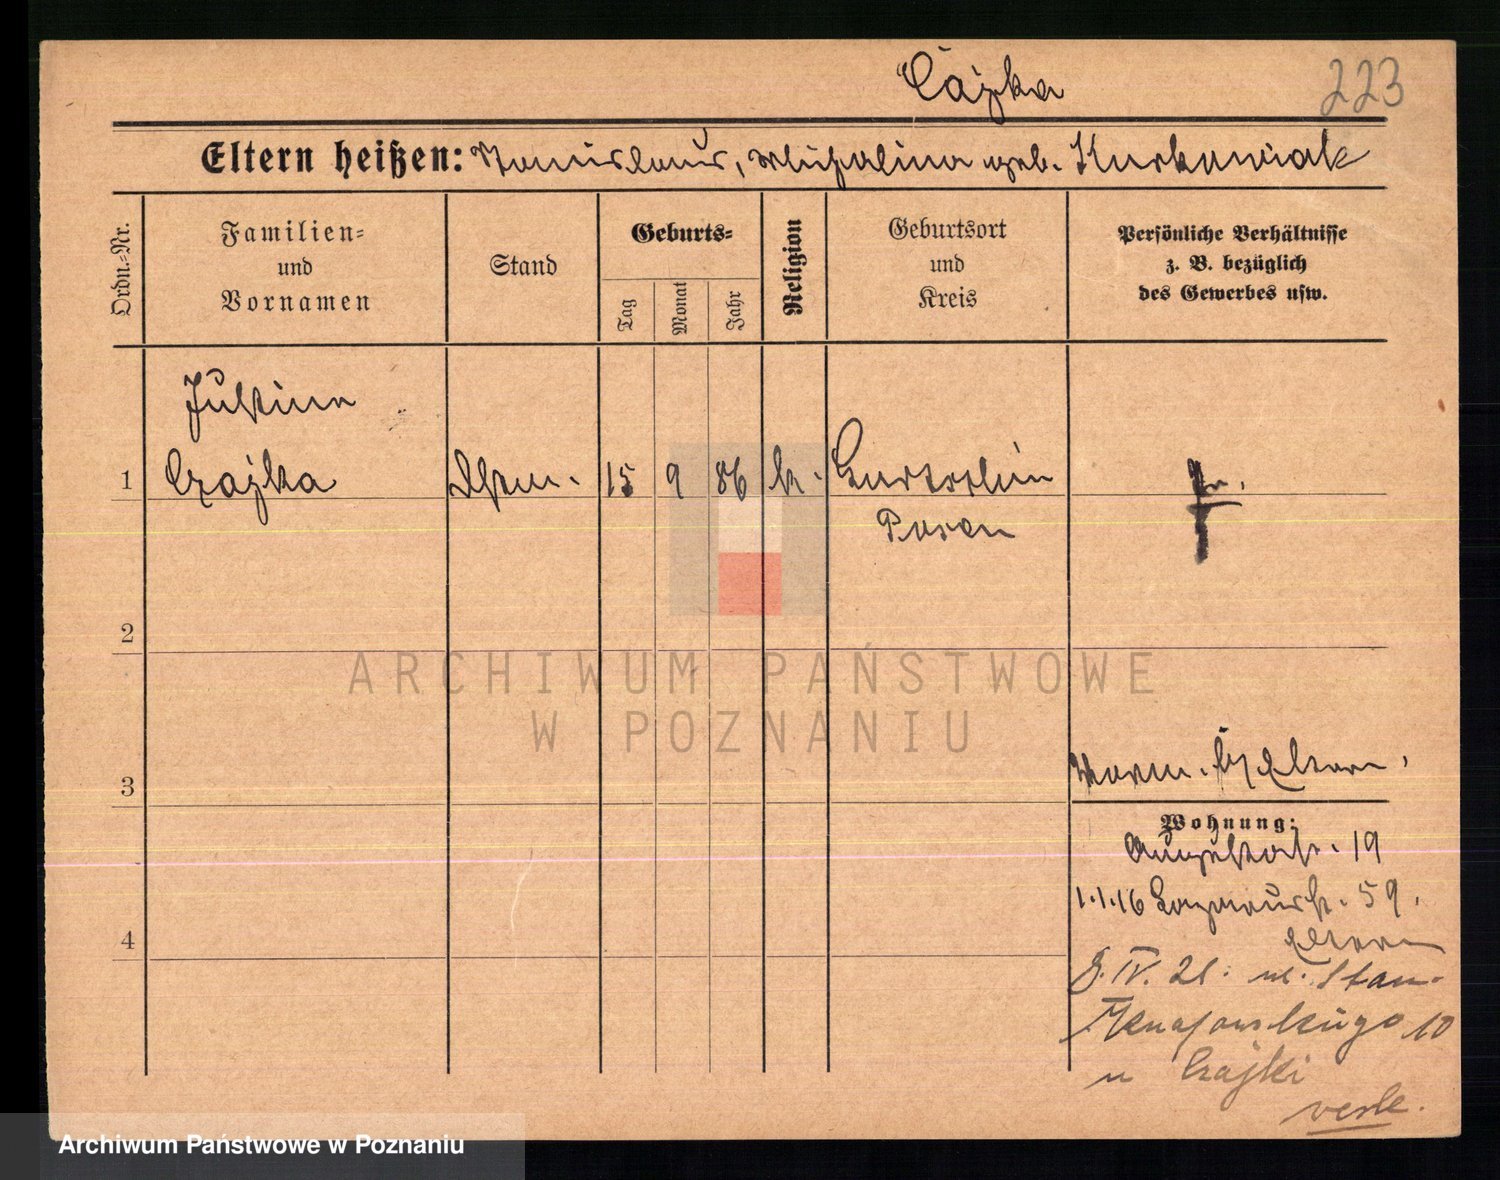 Cajka
223
Eltern heißen: Stanislaus, Michalina geb. Kurkowiak
Ordn.-Nr.
Familien-
und
Vornamen
Stand
Geburts-
Tag
Monat
Jahr
Religion
Geburtsort
und
Kreis
Persönliche Verhältnisse
z. B. bezüglich
des Gewerbes usw.
Justina
1 Czajka 15 9 86 k.
Posen
2
ARCHIWUM PAŃSTWOWE
W POZNANIU
3
Eltern.
Wohnung:
Augustastr. 19
1.1.16 59.
Eltern
8. IV. 21: ul. Stan.
10
u Czajki
Archiwum Państwowe w Poznaniu